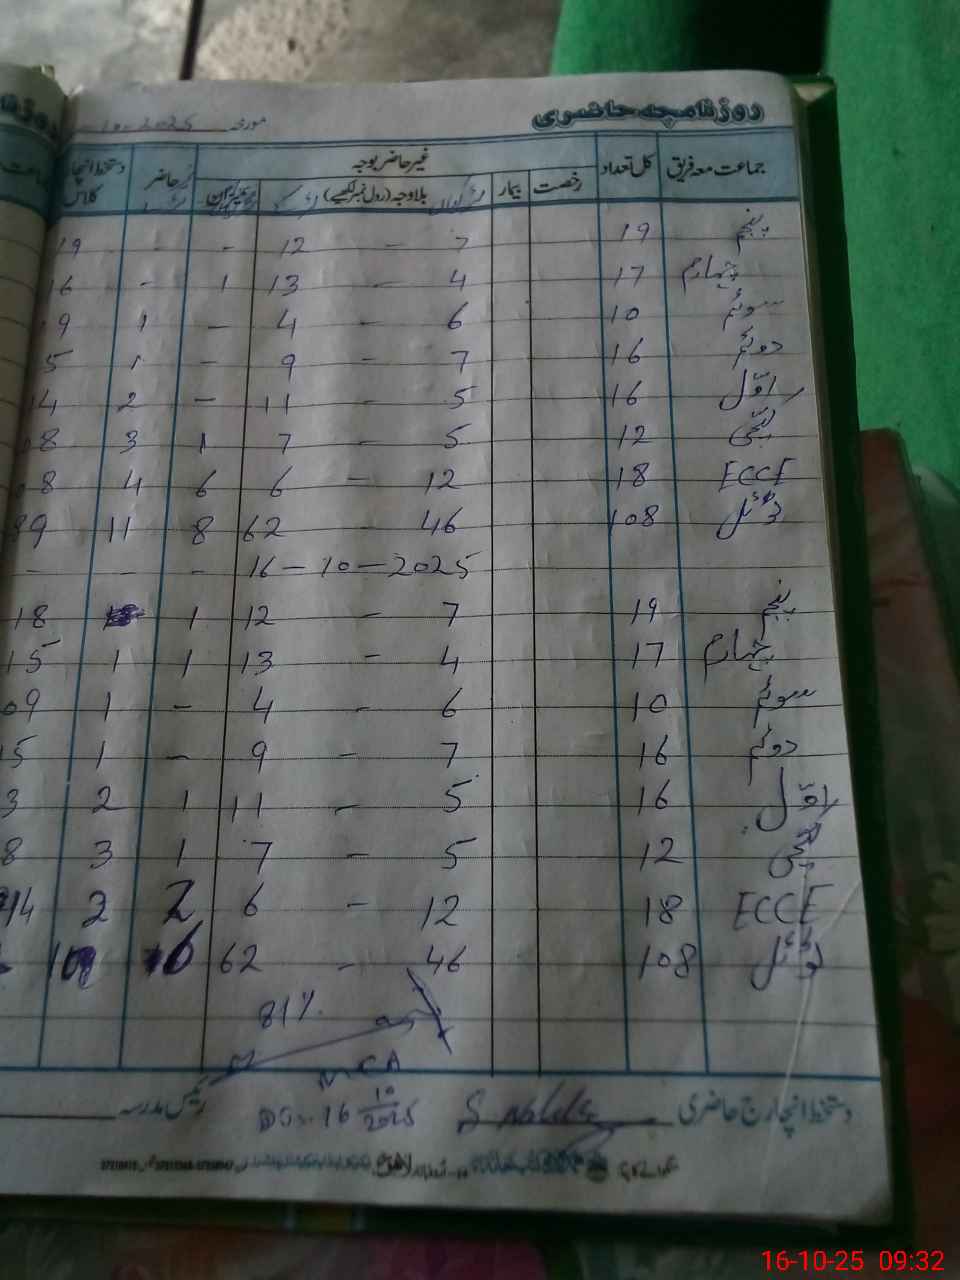 روزنامچہ حاضری مورخہ 10-2025
جماعت معہ فریق کل تعداد غیر حاضر بوجہ غیر حاضر دستخط انچارج کلاس
رخصت بیمار بلاوجہ (رول نمبر لکھیے)
پنجم 19 7 - 12 - - 19
چہارم 17 4 - 13 1 - 16
سوئم 10 6 - 4 - 1 9
دوئم 16 7 - 9 - 1 5
اوّل 16 5 - 11 - 2 14
کچی 12 5 - 7 1 3 08
ECCE 18 12 - 6 6 4 08
ٹوٹل 108 46 - 62 8 11 89
16-10-2025 - - -
پنجم 19 7 - 12 1 18
چہارم 17 4 - 13 1 1 15
سوئم 10 6 - 4 - 1 09
دوئم 16 7 - 9 - 1 15
اوّل 16 5 - 11 1 2 3
کچی 12 5 - 7 1 3 8
ECCE 18 12 - 6 2 2 14
ٹوٹل 108 46 - 62
81%
MEA
دستخط انچارج حاضری رئیس مدرسہ
16 10/2025
16-10-25 09:32